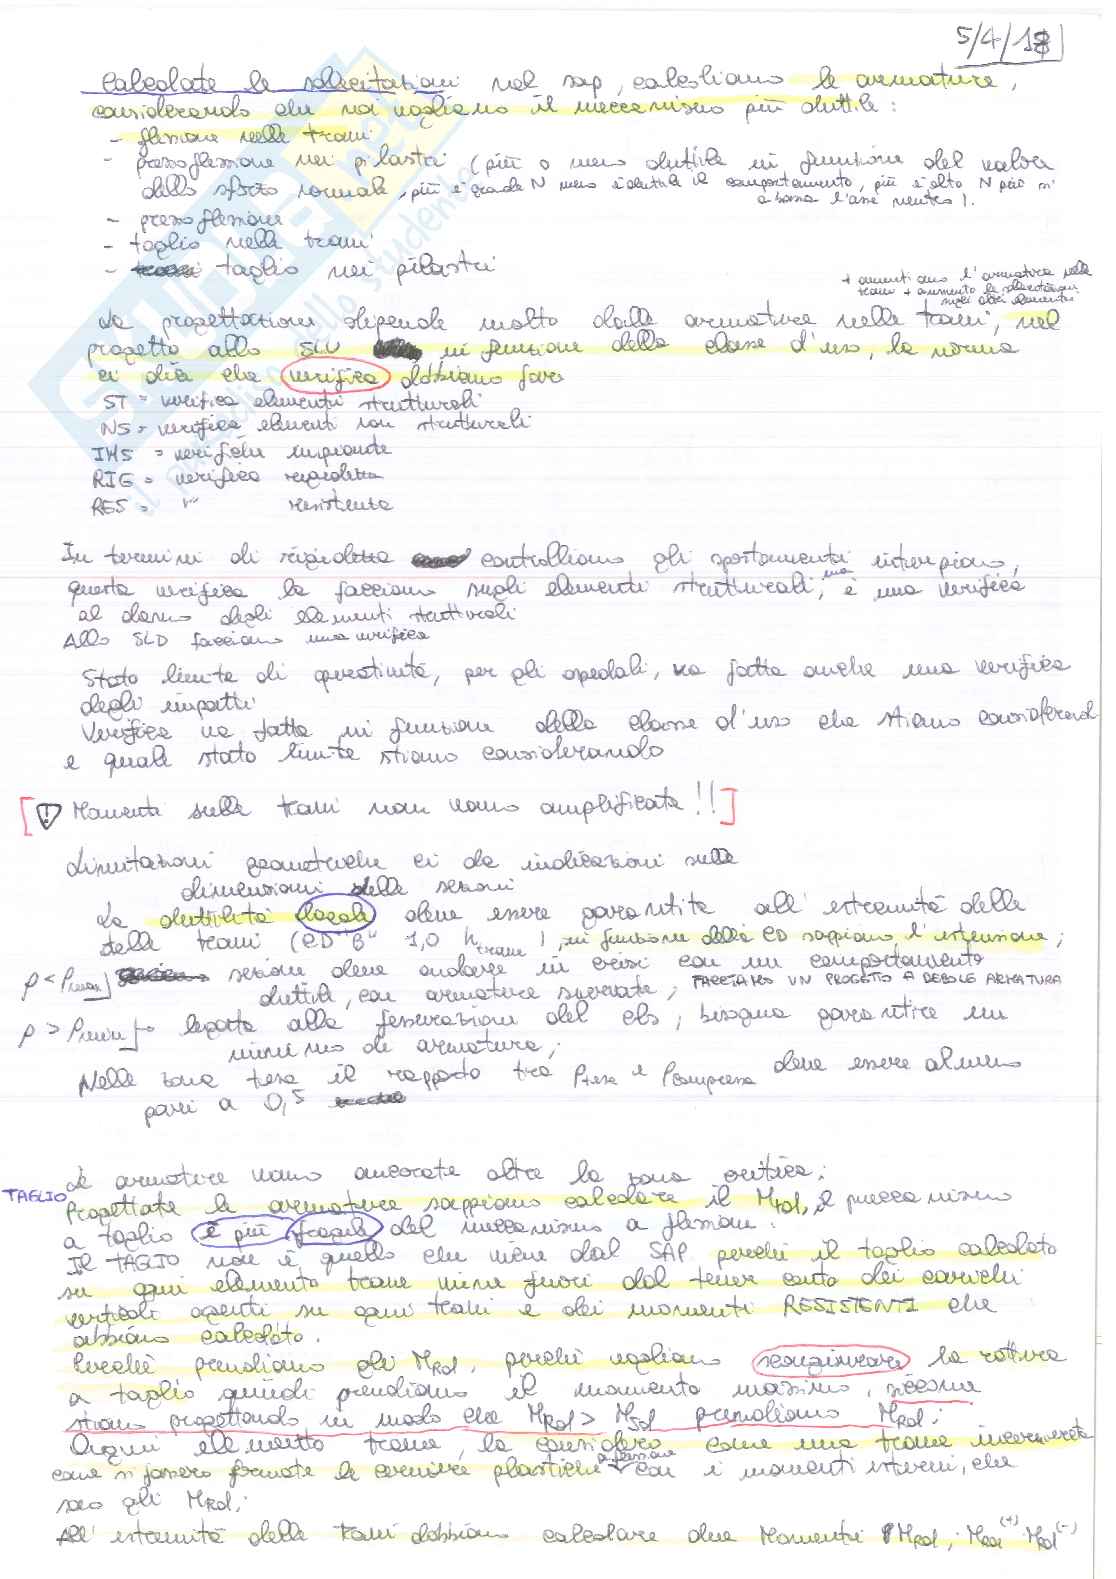 5/4/18
Calcolate le sollecitazioni nel sap, calcoliamo le armature,
considerando che noi vogliamo il meccanismo più duttile:
- flessione nelle travi
- presso flessione nei pilastri (più o meno duttile in funzione del valore
dello sforzo normale, più è grande N meno è duttile il comportamento, più è alto N più si
abbassa l'asse neutro).
- presso flessione
- taglio nelle travi
- taglio nei pilastri
+ aumentiamo l'armatura nelle
travi + aumento le sollecitazioni
sugli altri elementi
La progettazione dipende molto dalle armature nelle travi, nel
progetto allo SLU in funzione della classe d'uso, la norma
ci dice che verifica dobbiamo fare
ST = verifica elementi strutturali
NS = verifica elementi non strutturali
IMS = verifiche impianti
RIG = verifica rigidezza
RES = " resistenza
In termini di rigidezza controlliamo gli spostamenti interpiano,
questa verifica la facciamo sugli elementi strutturali, ma è una verifica
al danno degli elementi strutturali
Allo SLD facciamo una verifica
Stato limite di operatività, per gli ospedali, va fatta anche una verifica
degli impatti
Verifica va fatta in funzione della classe d'uso che stiamo considerando
e quale stato limite stiamo considerando
[! Momenti sulle travi non vanno amplificati!!]
Limitazioni geometriche ci da indicazioni sulle
dimensioni delle sezioni
La duttilità locale deve essere garantita all'estremità delle
delle travi (CD "B" 1,0 h trave), in funzione della CD sappiamo l'estensione;
ρ < ρmax] sezione deve andare in crisi con un comportamento
duttile, con armature snervate; FACCIAMO UN PROGETTO A DEBOLE ARMATURA
ρ > ρmin] legata alla fessurazione del cls, bisogna garantire un
minimo di armatura;
Nelle zona tesa il rapporto tra ρtesa e ρcompressa deve essere almeno
pari a 0,5
Le armature vanno ancorate oltre la zona critica;
TAGLIO
Progettate le armature sappiamo calcolare il MRd, il meccanismo
a taglio è più fragile del meccanismo a flessione.
Il TAGLIO non è quello che viene dal SAP perché il taglio calcolato
su ogni elemento trave viene fuori dal tener conto dei carichi
verticali agenti su ogni travi e dei momenti RESISTENTI che
abbiamo calcolato.
Perché prendiamo gli MRd, perché vogliamo scongiurare la rottura
a taglio quindi prendiamo il momento massimo, siccome
stiamo progettando in modo che MRd > MSd prendiamo MRd;
Ogni elemento trave, lo considero come una trave incernierata
come si fossero formate le cerniere plastiche a flessione con i momenti interni, che
sono gli MRd;
All'estremità delle travi dobbiamo calcolare due Momenti MRd, MRd(+) MRd(-)